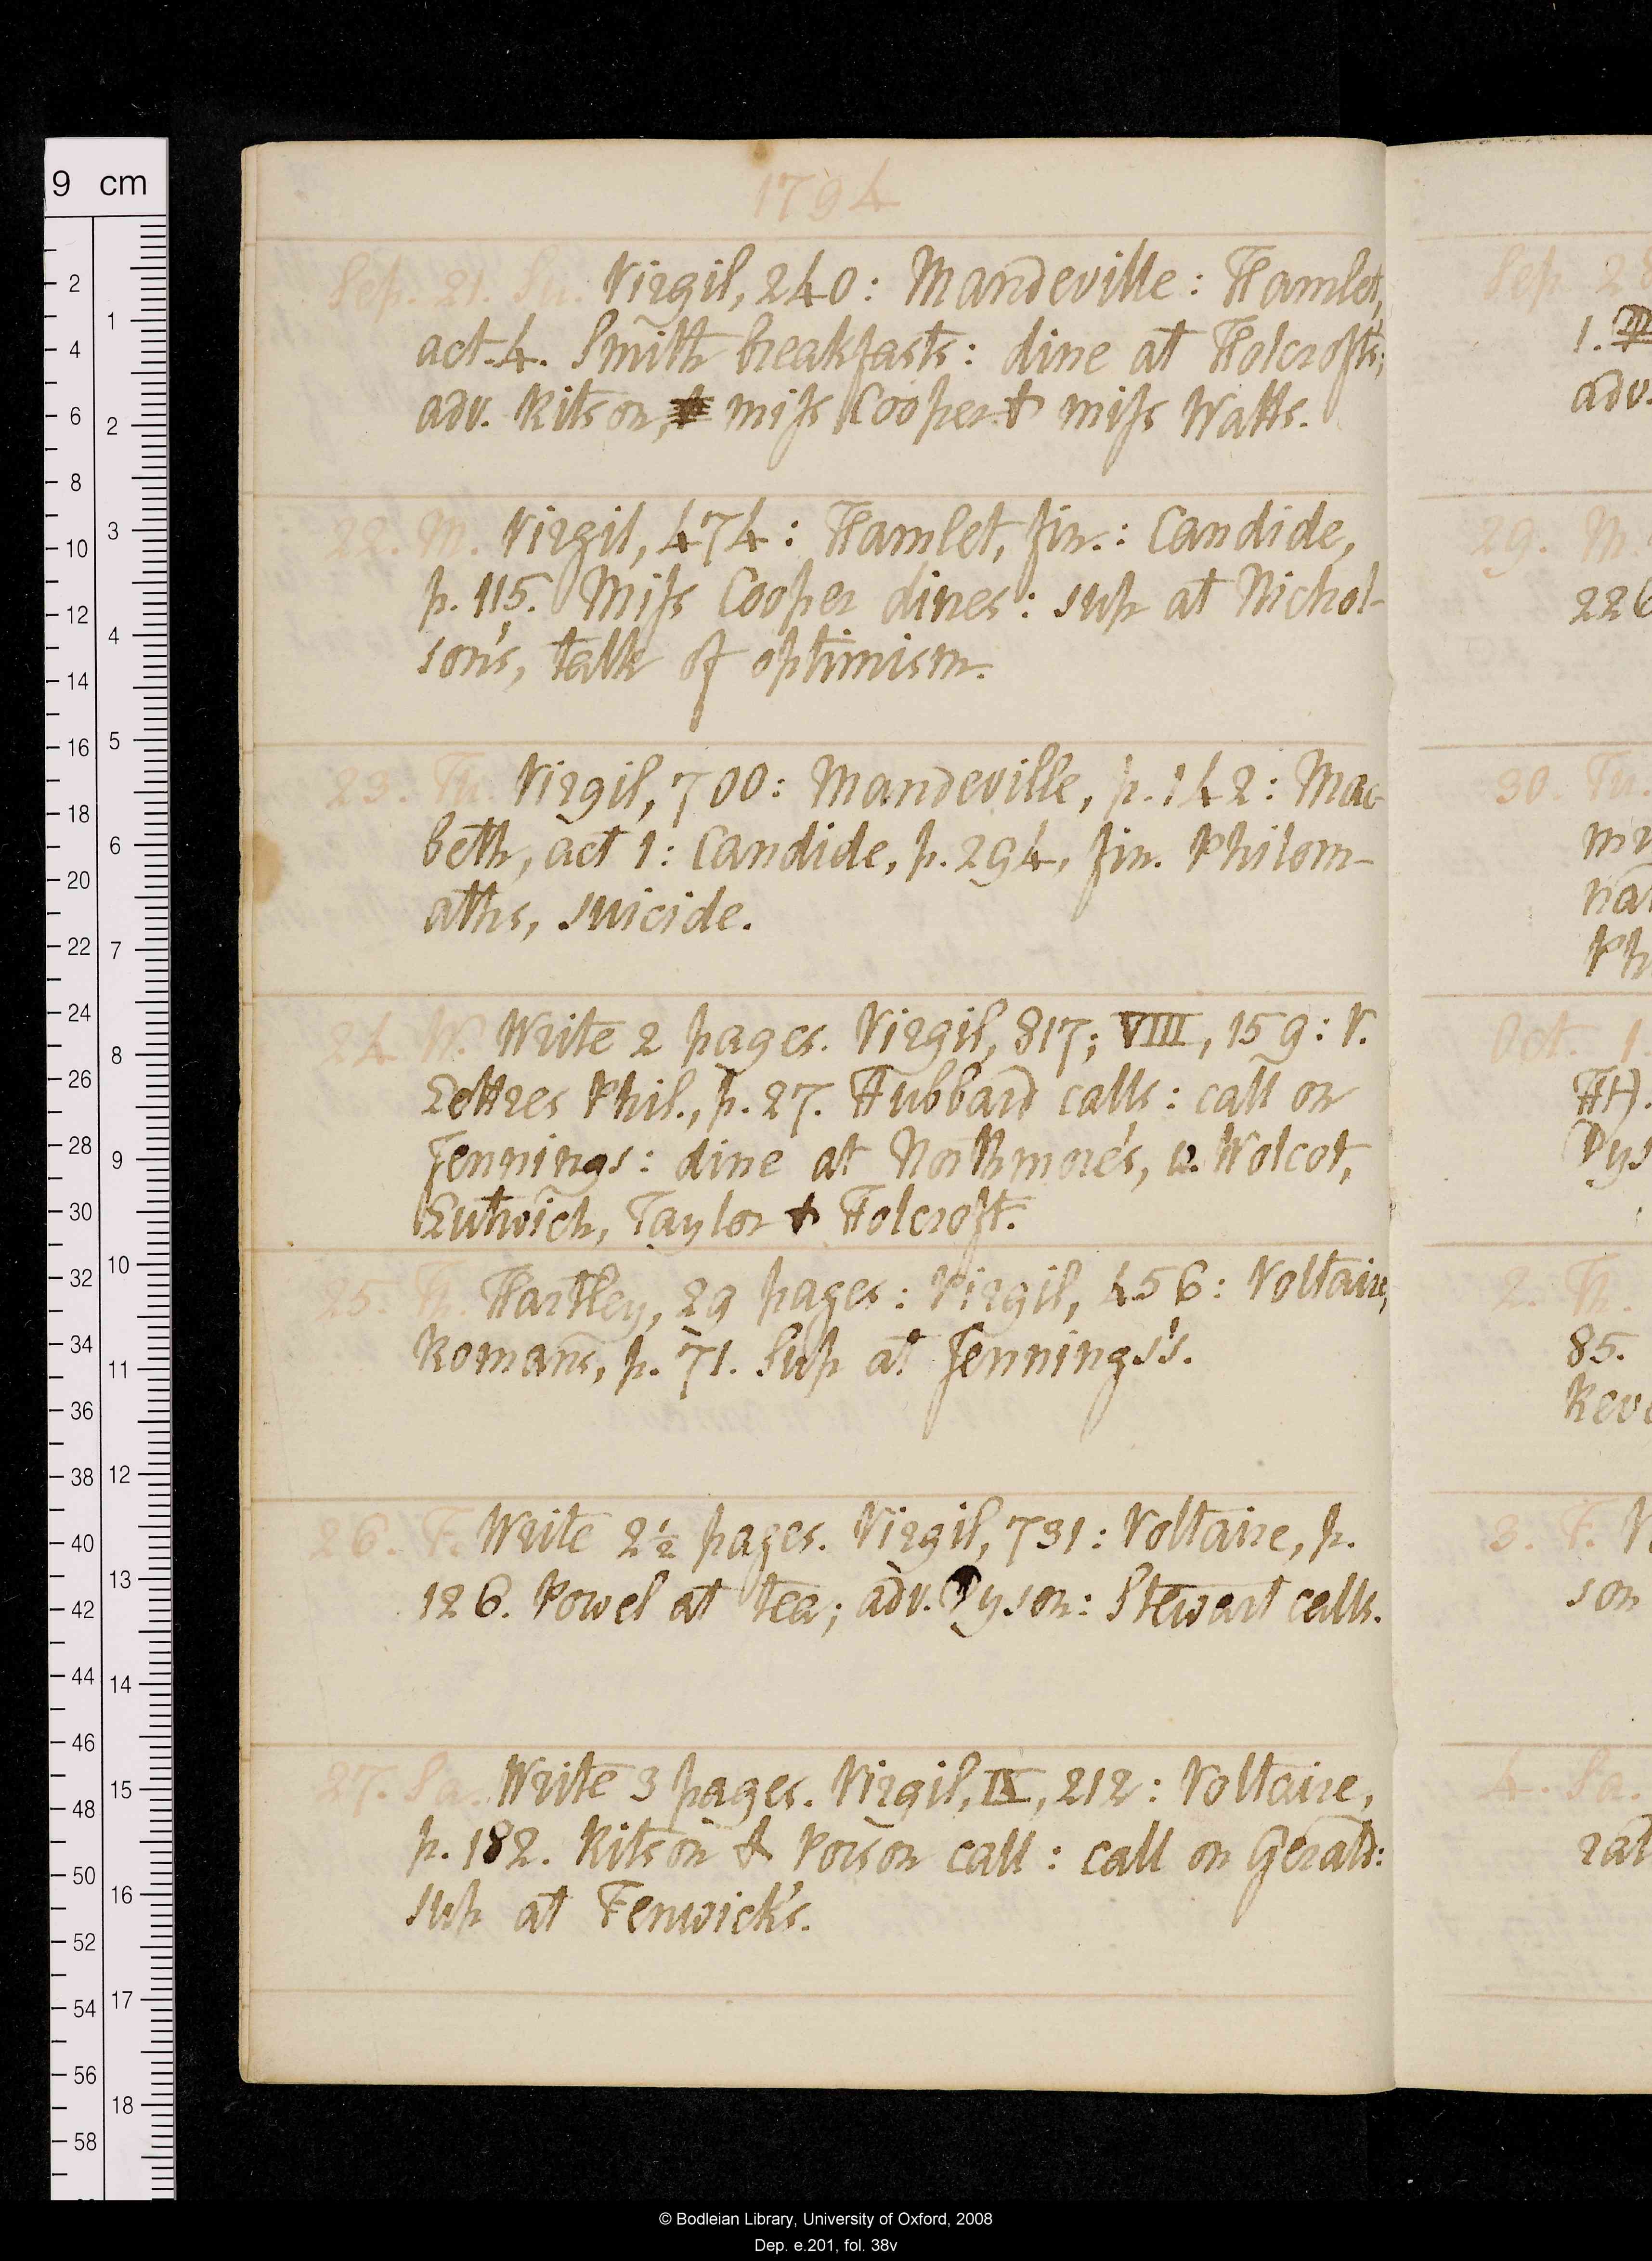 1794
Sep. 21. Su. Virgil, 240: Mandeville: Hamlet,
act 4. Smith breakfasts: dine at Holcroft's;
adv. Ritson, miss Cooper & miss Watts.
22. M. Virgil, 474: Hamlet, fin.: Candide,
p. 115. Miss Cooper dines: sup at Nichol-
son's, talk of optimism.
23. Tu. Virgil, 700: Mandeville, p. 142: Mac-
beth, act 1: Candide, p. 294, fin. Philom-
aths, suicide.
24. W. Write 2 pages. Virgil, 817; VIII, 159: V.
Lettres Phil., p. 27. Hubbard calls: call on
Jennings: dine at Northmore's, w. Wolcot,
Lutwich, Taylor & Holcroft.
25. Th. Hartley, 29 pages: Virgil, 456: Voltaire,
Romans, p. 71. Sup at Jennings's.
26. F. Write 2½ pages. Virgil, 731: Voltaire, p.
126. Powel at tea; adv. Dyson: Stewart calls.
27. Sa. Write 3 pages. Virgil, IX, 212: Voltaire,
p. 182. Ritson & Porson call: call on Gerald:
sup at Fenwick's.
Sep 28
1.
adv.
29. M.
226
30. Tu.
Oct. 1.
H.
Dys
2. Th.
85.
Rev
3. F. V
son
4. Sa.
9 cm
2
4
6
8
10
12
14
16
18
20
22
24
26
28
30
32
34
36
38
40
42
44
46
48
50
52
54
56
58
1
2
3
4
5
6
7
8
9
10
11
12
13
14
15
16
17
18
© Bodleian Library, University of Oxford, 2008
Dep. e.201, fol. 38v